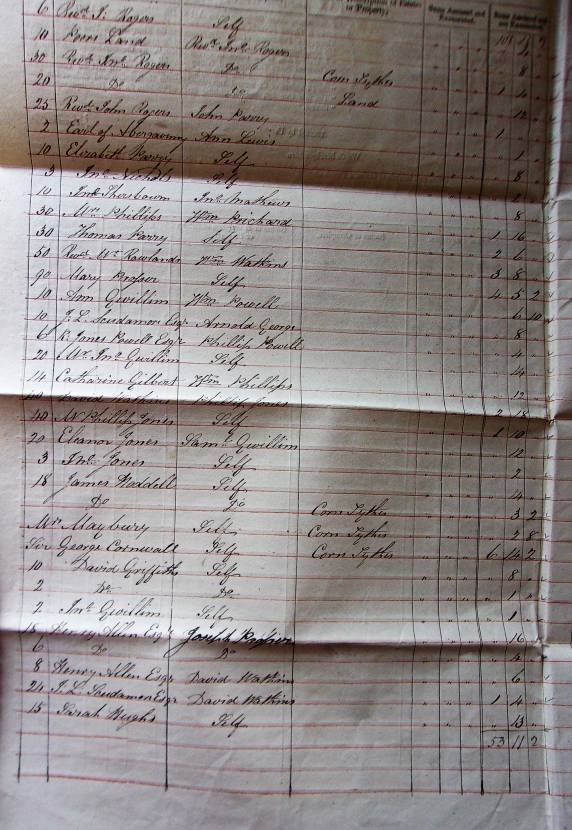 6 Revd. J. Rogers Self
10 Poor Land Revd. Jno. Rogers
30 Revd. Jno. Rogers Do Corn Tythes 8
20 Do Do Land 1 4
25 Revd. John Rogers John Parry 12
2 Earl of Abergavenny Ann Lewis 1
10 Elizabeth Parry Self 1
3 Jno. Nichols Self 8
10 Jno. Jno. Mathews 2
30 Mr. Phillips Wm. Prichard 8
30 Thomas Parry Self 1 16
50 Revd. Mr. Rowlands Wm. Watkins 2 6
90 Mary Prosser Self 3 8
10 Ann Gwillim Wm. Powell 4 5 2
10 J. L. Scudamore Esqr. Arnold George 6 10
6 R. Jones Powell Esqr. Phillip Powell 8
20 Mr. Jno. Gwillim Self 4
14 Catharine Gilbert Wm. Phillips 14
40 David Watkins Philip Jones 12
40 Mr. Phillip Jones Self 2 18
20 Eleanor Jones Saml. Gwillim 1 10
3 Jno. Jones Self 12
18 James Waddell Self 2
Do Do Corn Tythes 4
Mr. Maybury Self Corn Tythes 3 2
Sir George Cornwall Self Corn Tythes 2 8
10 David Griffiths Self 6 14 2
2 Do Do 8
2 Jno. Gwillim Self 1
18 Henry Allen Esqr. Joseph Prosser 1
6 Do Do 16
8 Henry Allen Esqr. David Watkins 4
24 J. L. Scudamore Esqr. David Watkins 6
15 Sarah Hughs Self 1 4
13
53 11 2